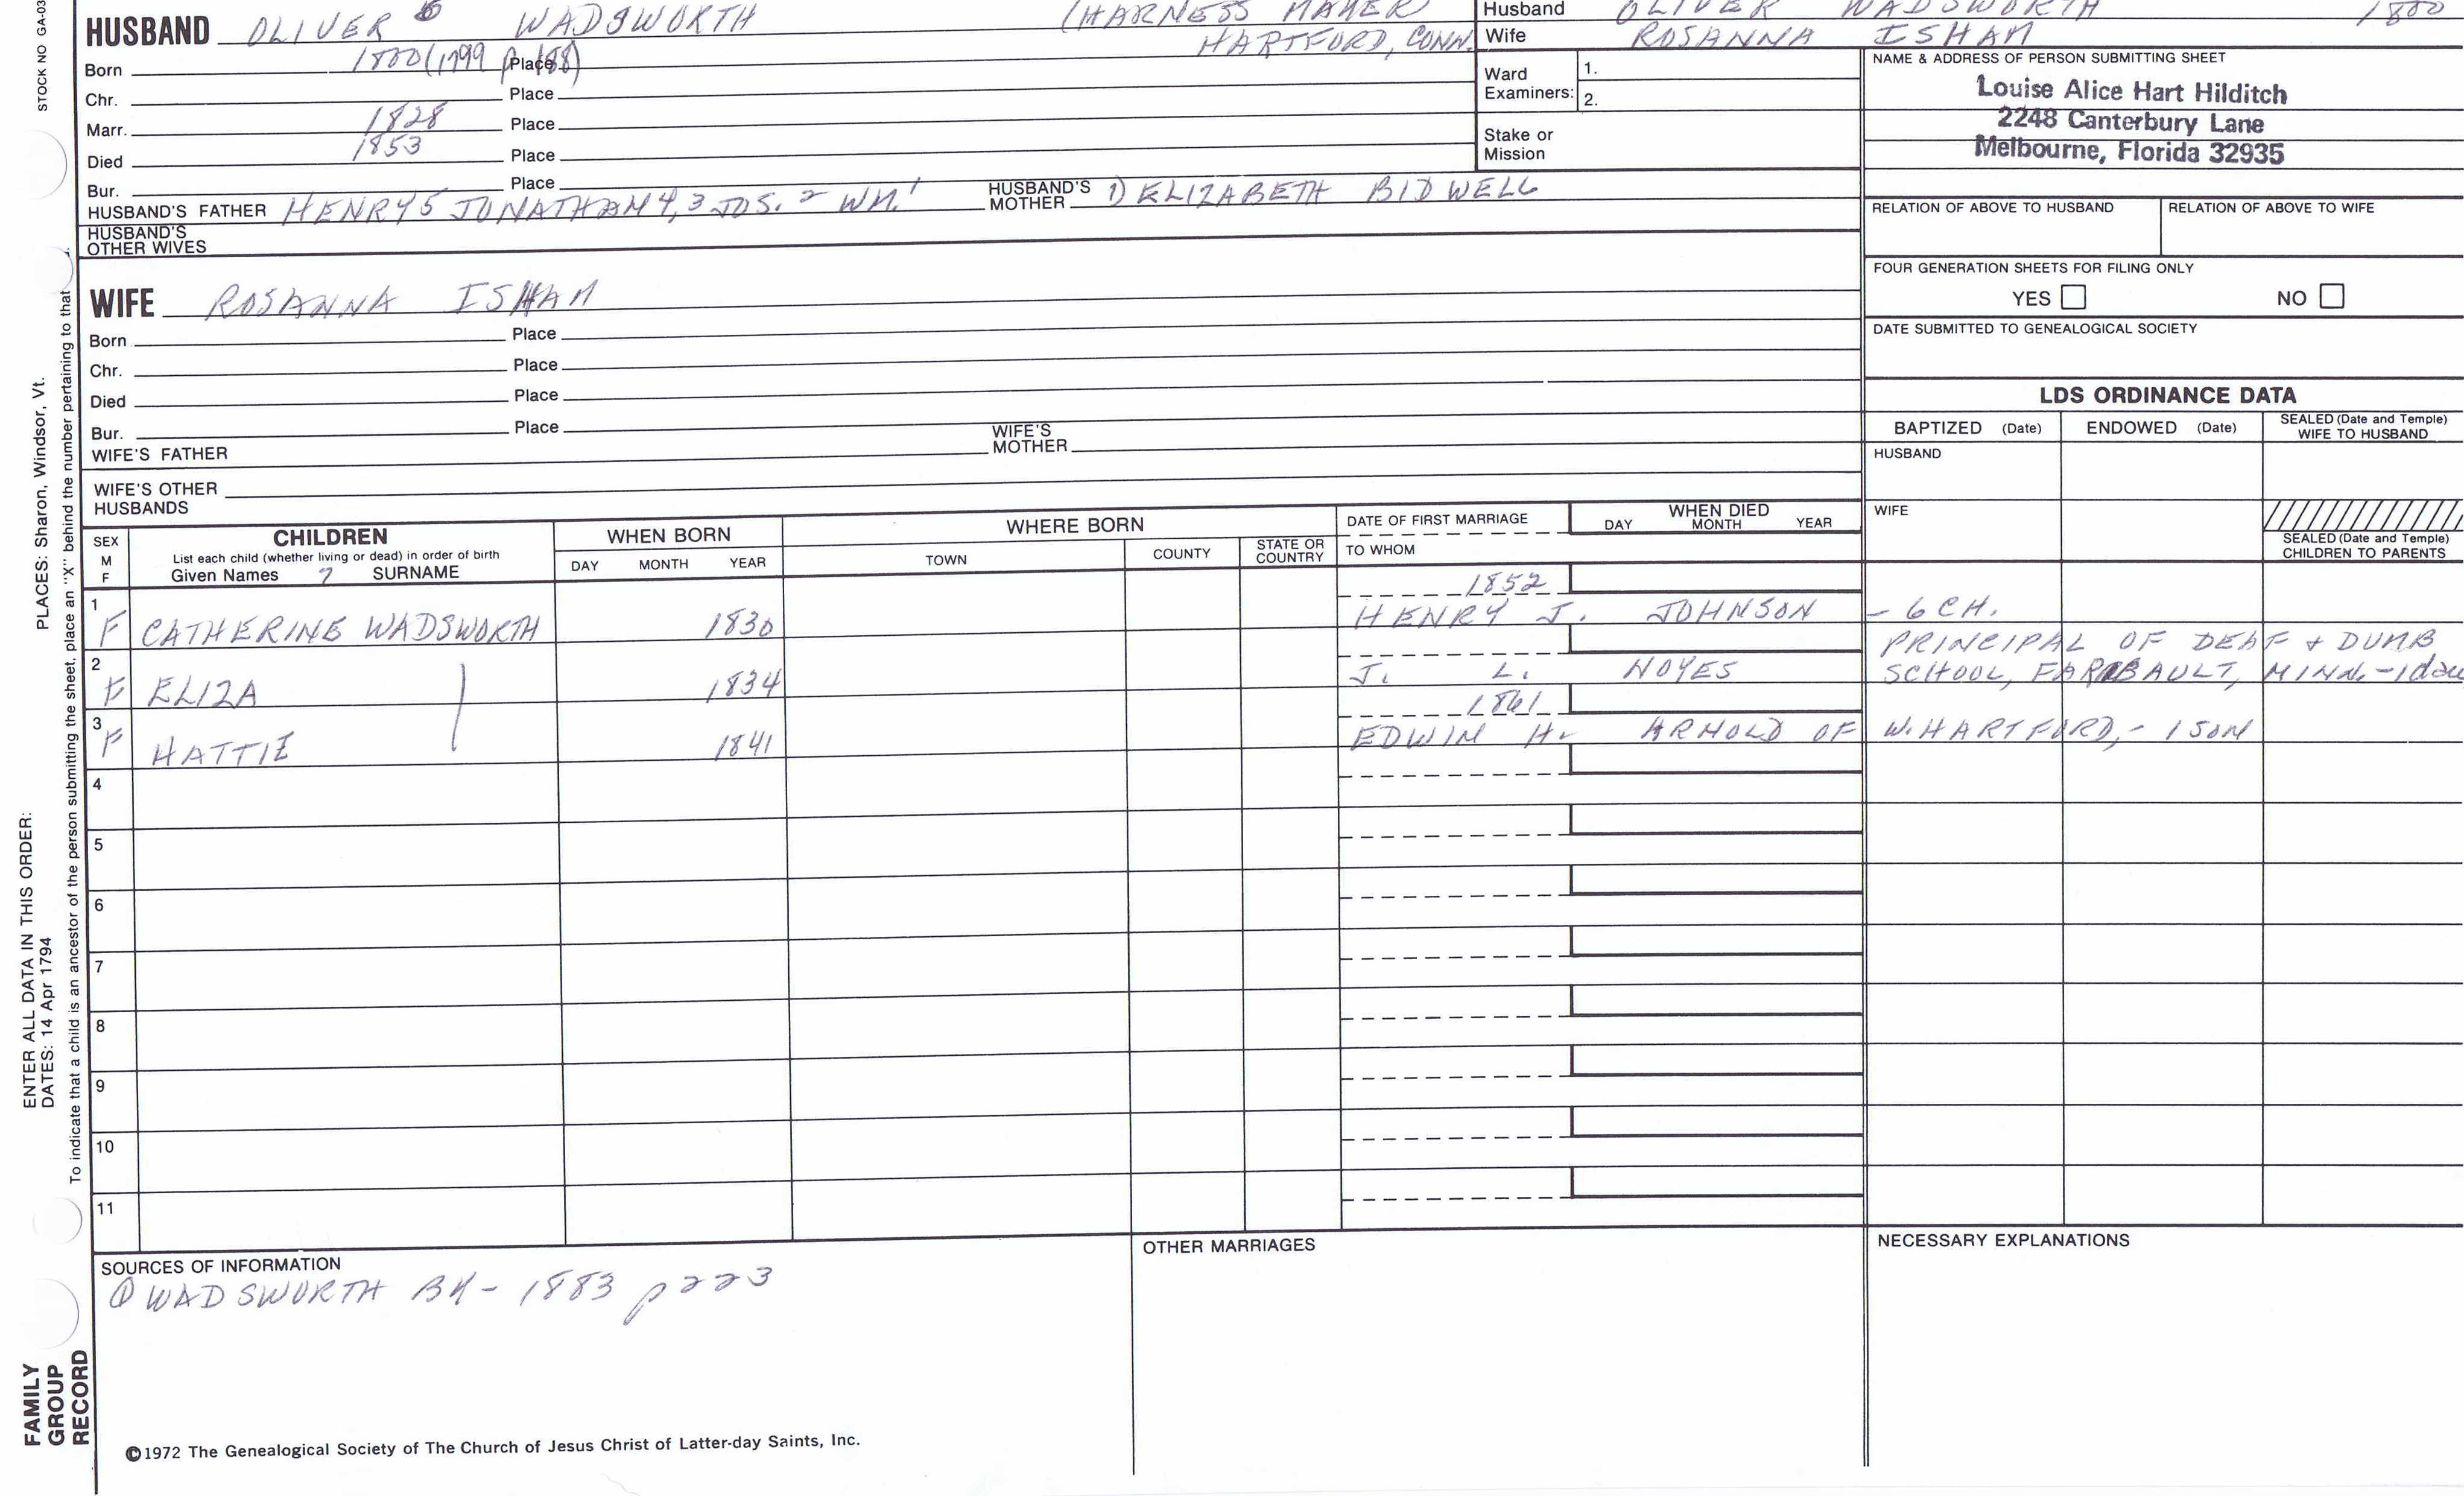 STOCK NO GA-03
HUSBAND OLIVER 6 WADSWORTH (HARNESS MAKER
HARTFORD, CONN.
Born 1800 (1799 p 188) Place
Chr. Place
Marr. 1828 Place
Died 1853 Place
Bur. Place
HUSBAND'S FATHER HENRY 5 JONATHAN 4, 3 JOS. 2 WM. 1 HUSBAND'S MOTHER 1) ELIZABETH BIDWELL
HUSBAND'S
OTHER WIVES
Husband OLIVER WADSWORTH 1800
Wife ROSANNA ISHAM
Ward
Examiners:
1.
2.
Stake or
Mission
NAME & ADDRESS OF PERSON SUBMITTING SHEET
Louise Alice Hart Hilditch
2248 Canterbury Lane
Melbourne, Florida 32935
RELATION OF ABOVE TO HUSBAND RELATION OF ABOVE TO WIFE
FOUR GENERATION SHEETS FOR FILING ONLY
YES NO
DATE SUBMITTED TO GENEALOGICAL SOCIETY
WIFE ROSANNA ISHAM
Born Place
Chr. Place
Died Place
Bur. Place
WIFE'S FATHER WIFE'S MOTHER
WIFE'S OTHER
HUSBANDS
LDS ORDINANCE DATA
BAPTIZED (Date) ENDOWED (Date) SEALED (Date and Temple)
WIFE TO HUSBAND
HUSBAND
WIFE
SEALED (Date and Temple)
CHILDREN TO PARENTS
SEX
M
F
CHILDREN
List each child (whether living or dead) in order of birth
Given Names 7 SURNAME
WHEN BORN
DAY MONTH YEAR
WHERE BORN
TOWN COUNTY STATE OR COUNTRY
DATE OF FIRST MARRIAGE
TO WHOM
WHEN DIED
DAY MONTH YEAR
1852
1 F CATHERINE WADSWORTH 1830 HENRY J. JOHNSON - 6 CH.
PRINCIPAL OF DEAF + DUMB
2 F ELIZA 1834 J. L. NOYES SCHOOL, FARIBAULT, MINN. - 1 dau
1861
3 F HATTIE 1841 EDWIN H. ARNOLD OF W. HARTFORD, - 1 SON
4
5
6
7
8
9
10
11
SOURCES OF INFORMATION
① WADSWORTH BK - 1883 p 223
OTHER MARRIAGES
NECESSARY EXPLANATIONS
©1972 The Genealogical Society of The Church of Jesus Christ of Latter-day Saints, Inc.
FAMILY
GROUP
RECORD
ENTER ALL DATA IN THIS ORDER:
DATES: 14 Apr 1794
PLACES: Sharon, Windsor, Vt.
To indicate that a child is an ancestor of the person submitting the sheet, place an "X" behind the number pertaining to that